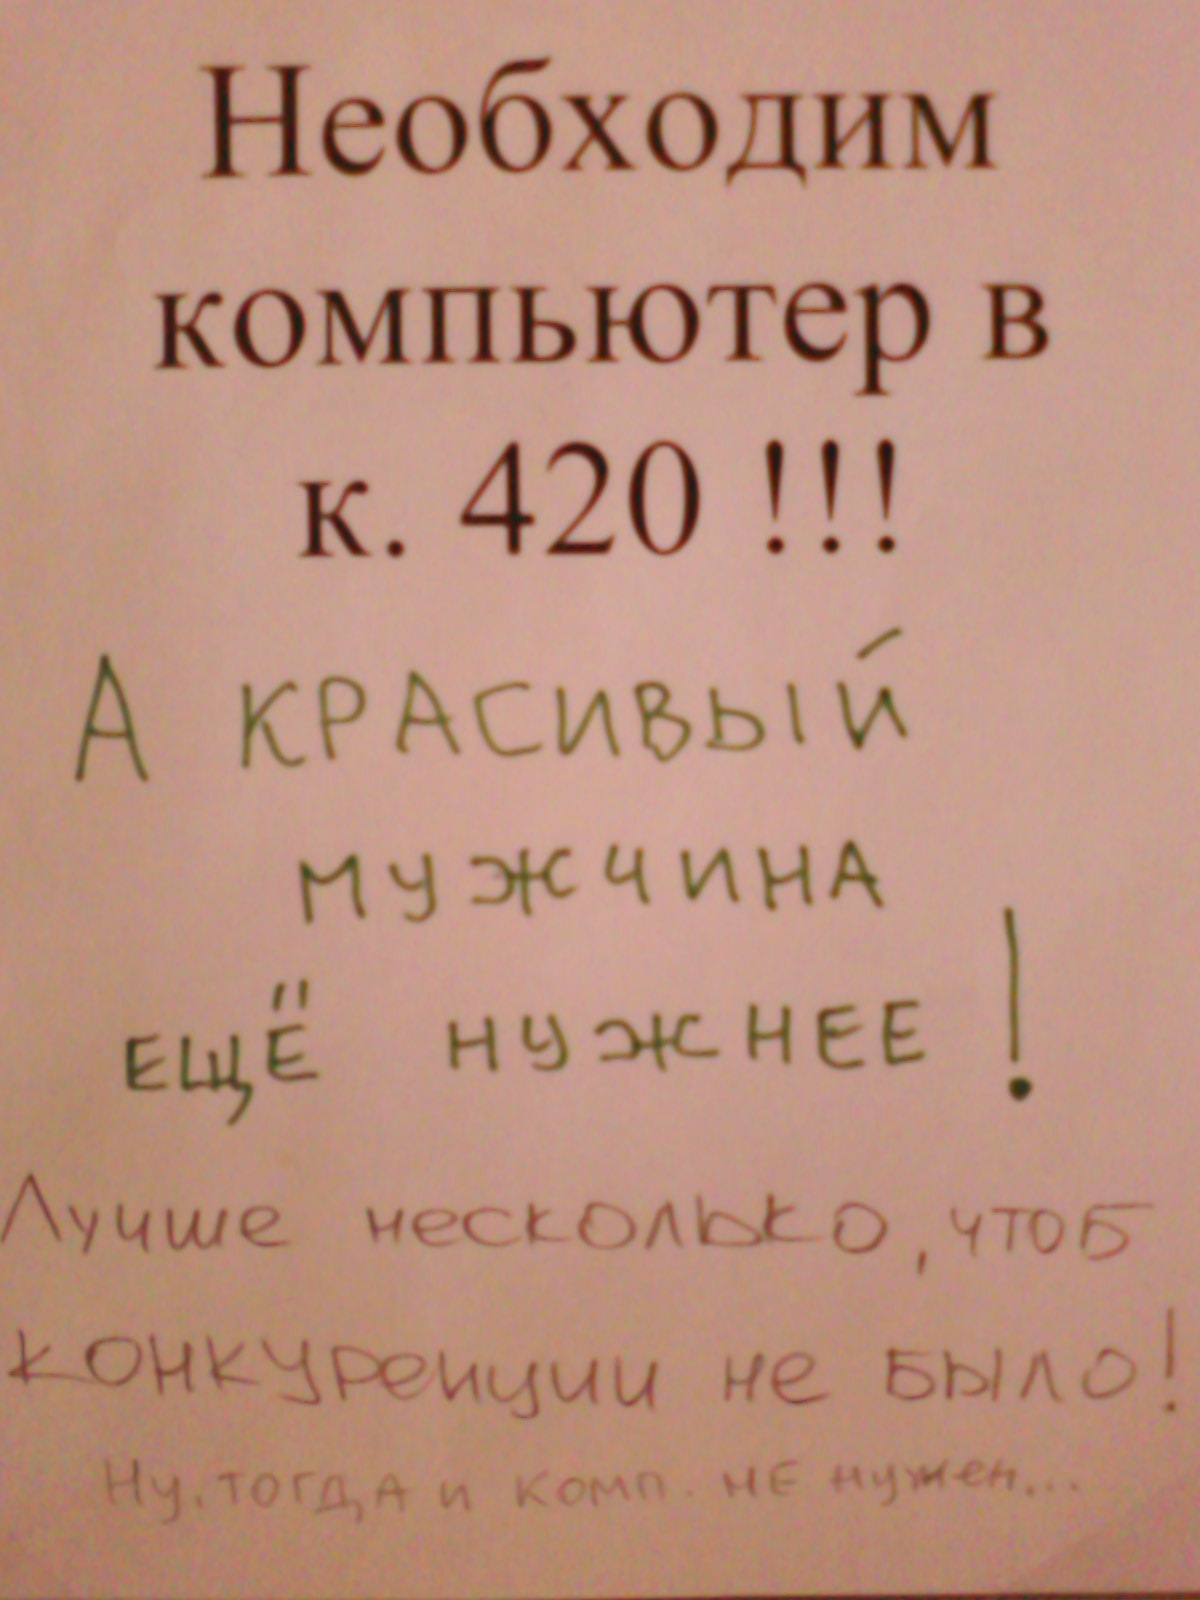 Необходим
компьютер в
к. 420 !!!
А КРАСИВЫЙ
МУЖЧИНА
ЕЩЁ НУЖНЕЕ!
Лучше несколько, чтоб
конкуренции не было!
Ну. тогда и комп. не нужен...